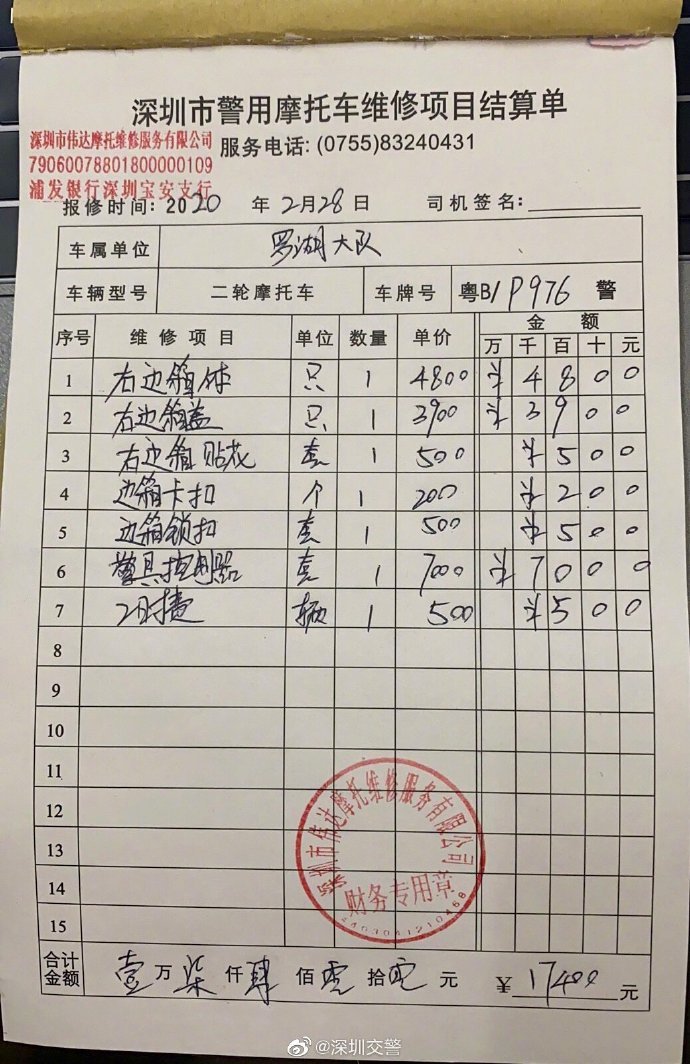 深圳市警用摩托车维修项目结算单
深圳市伟达摩托维修服务有限公司
79060078801800000109
浦发银行深圳宝安支行
服务电话: (0755)83240431
报修时间: 2020 年 2月28日 司机签名:
车属单位 罗湖大队
车辆型号 二轮摩托车 车牌号 粤B/P976 警
序号 维修项目 单位 数量 单价 金额
万 千 百 十 元
1 右边箱体 只 1 4800 ¥ 4 8 0 0
2 右边箱盖 只 1 3900 ¥ 3 9 0 0
3 右边箱贴花 套 1 500 ¥ 5 0 0
4 边箱卡扣 个 1 200 ¥ 2 0 0
5 边箱锁扣 套 1 500 ¥ 5 0 0
6 警具控制器 套 1 7000 ¥ 7 0 0 0
7 工时费 辆 1 500 ¥ 5 0 0
8
9
10
11
12
13
14
15
深圳市伟达摩托维修服务有限公司
财务专用章
合计金额 壹万柒仟肆佰零拾零元 ¥ 17400 元
@深圳交警